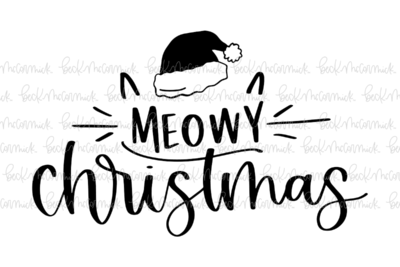 MEOWY
christmas